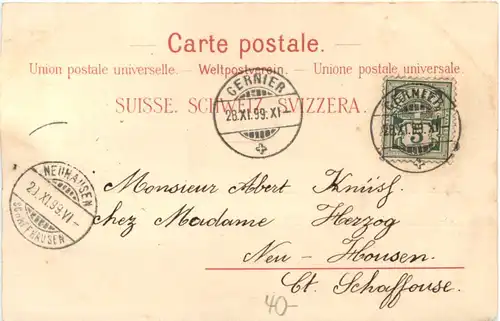 Carte postale.
Union postale universelle. — Weltpostverein. — Unione postale universale.
SUISSE. SCHWEIZ. SVIZZERA.
CERNIER
28.XI.99.XI–
CERNIER
28.XI.99.XI
5
NEUHAUSEN
29.XI.99.VI–
SCHAFFHAUSEN
Monsieur Abert Knüsli
chez Madame Herzog
Neu-Housen
Ct. Schaffouse.
40-